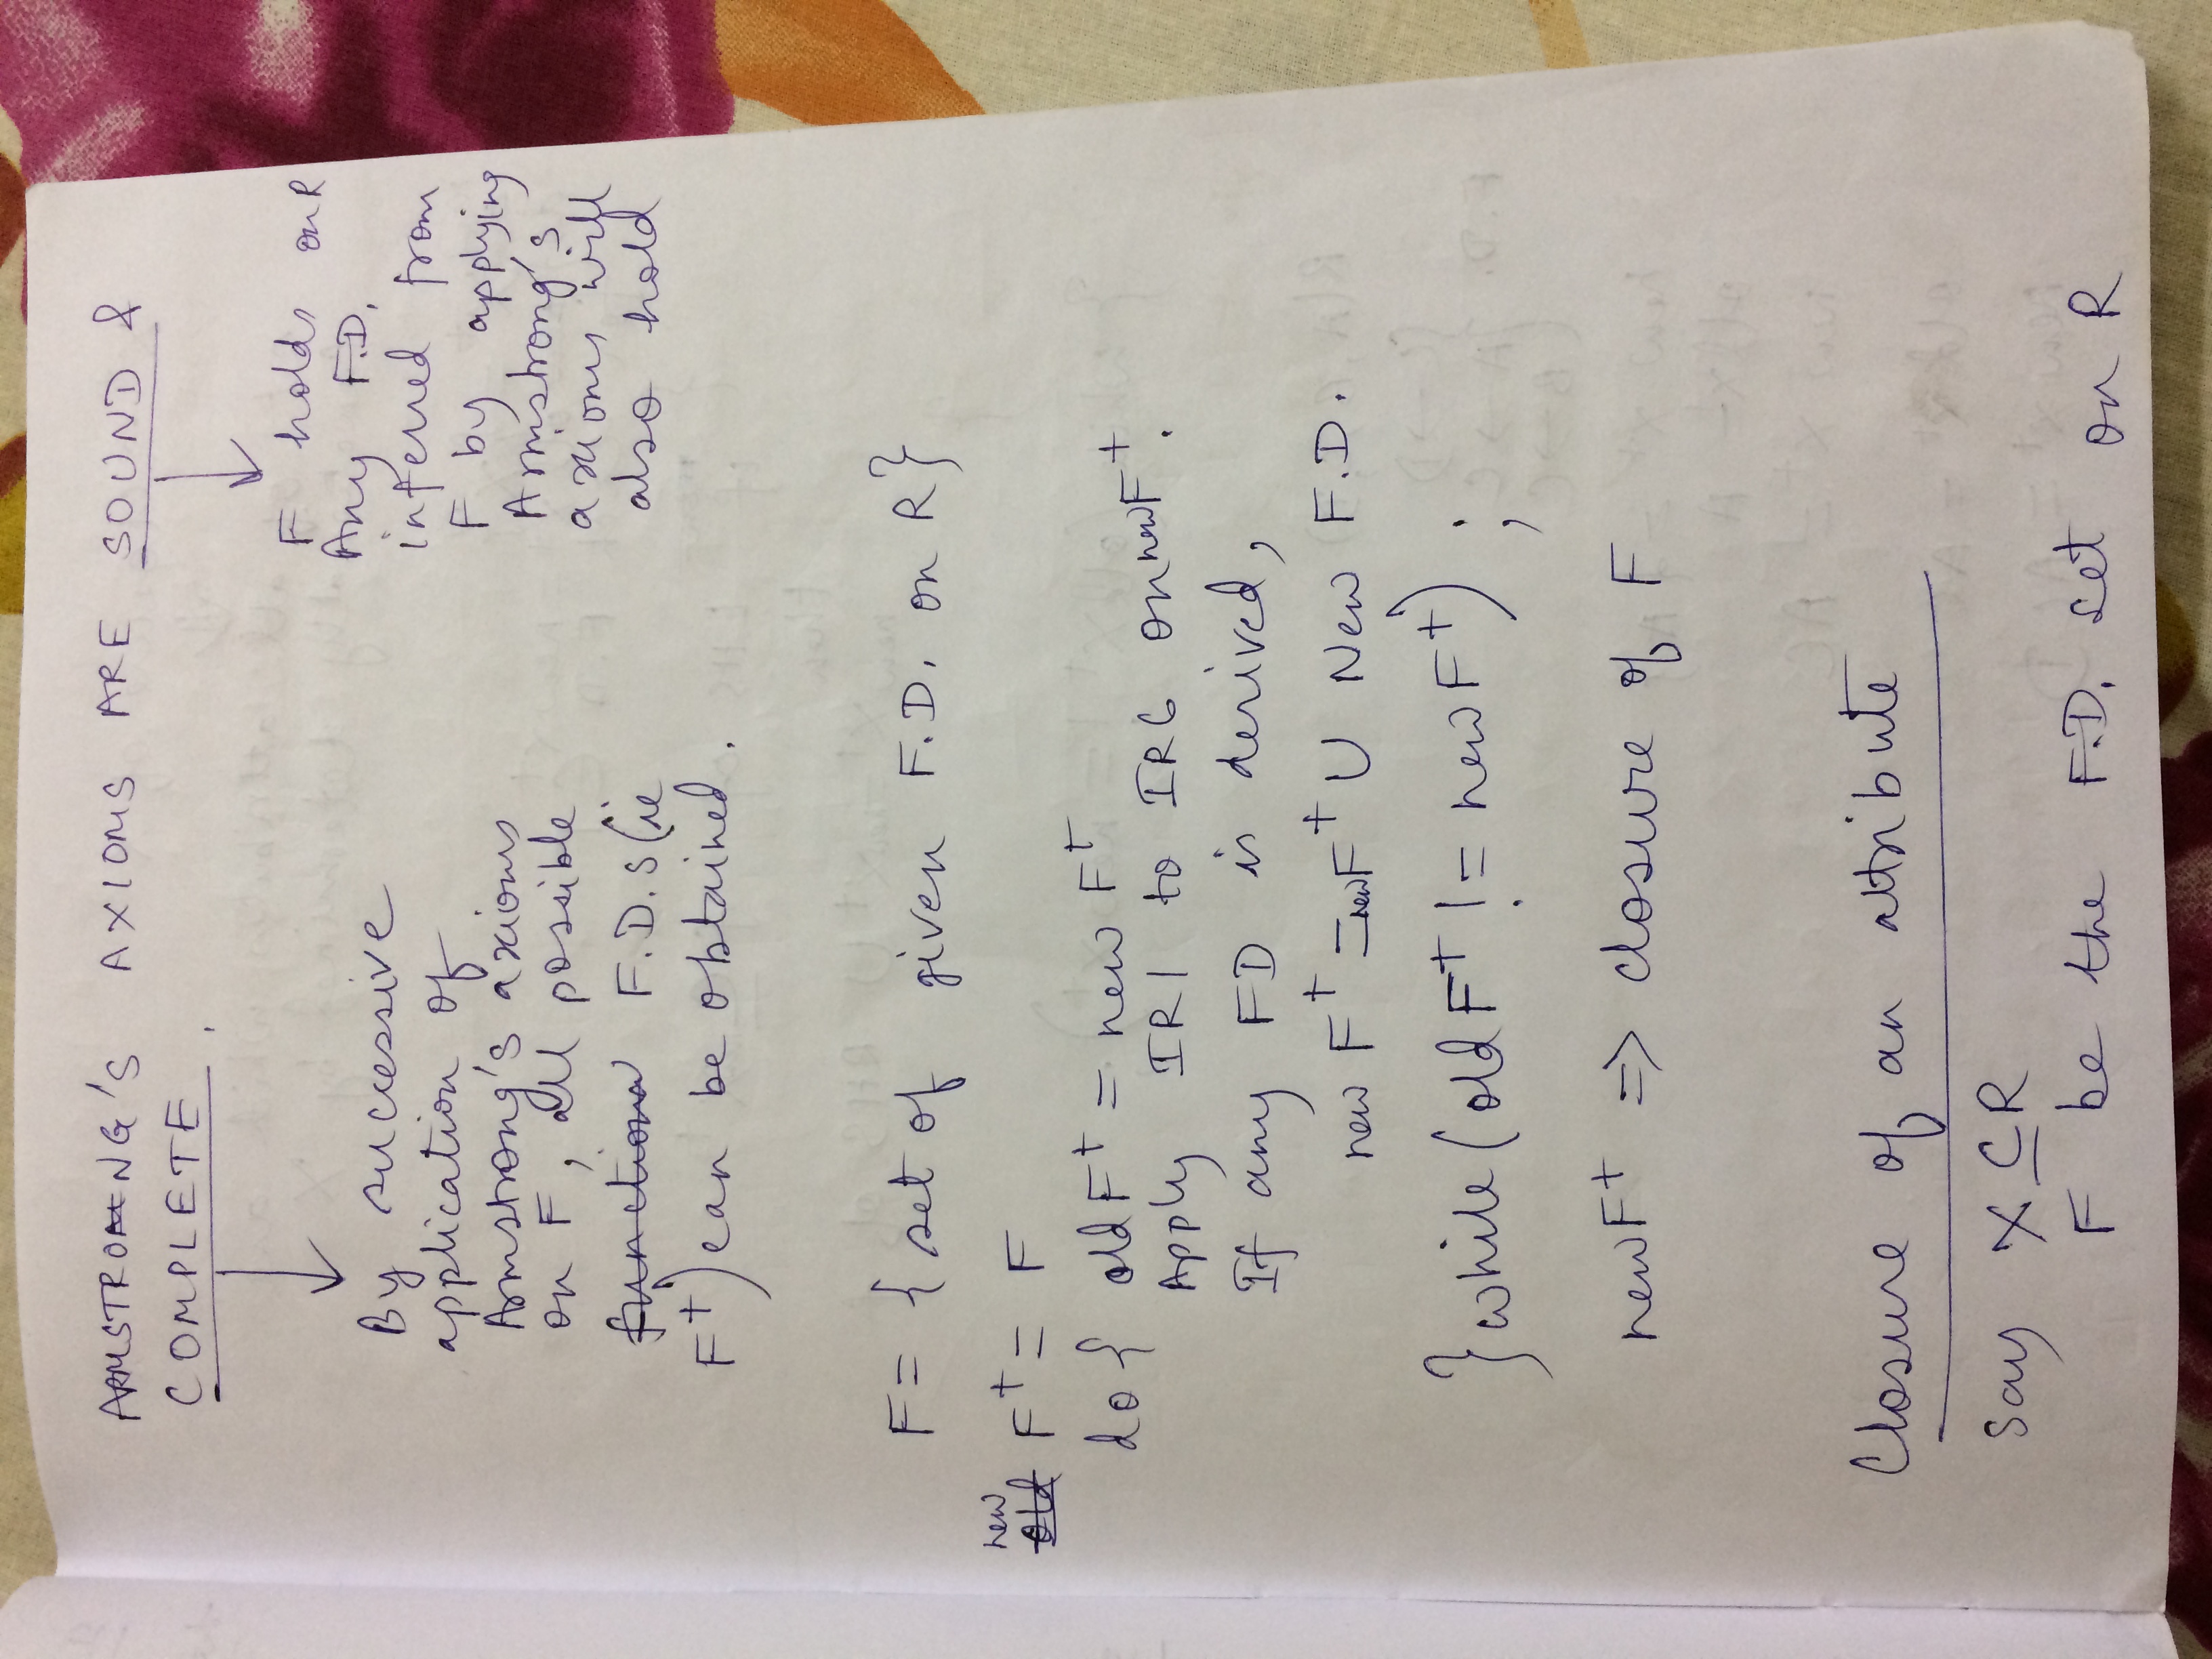 ARMSTRONG'S AXIOMS ARE SOUND &
COMPLETE.
By successive
application of
Armstrong's axioms
on F, all possible
functional F.D.s (ie
F+) can be obtained.
F holds on R
Any F.D.
inferred from
F by applying
Armstrong's
axioms will
also hold
F = { set of given F.D. on R}
new
old F+ = F
do { old F+ = new F+
Apply IR1 to IR6 on new F+.
If any FD is derived,
new F+ = new F+ U New F.D.
} while (old F+ != new F+) ;
new F+ => closure of F
Closure of an attribute
Say X ⊆ R
F be the F.D. set on R